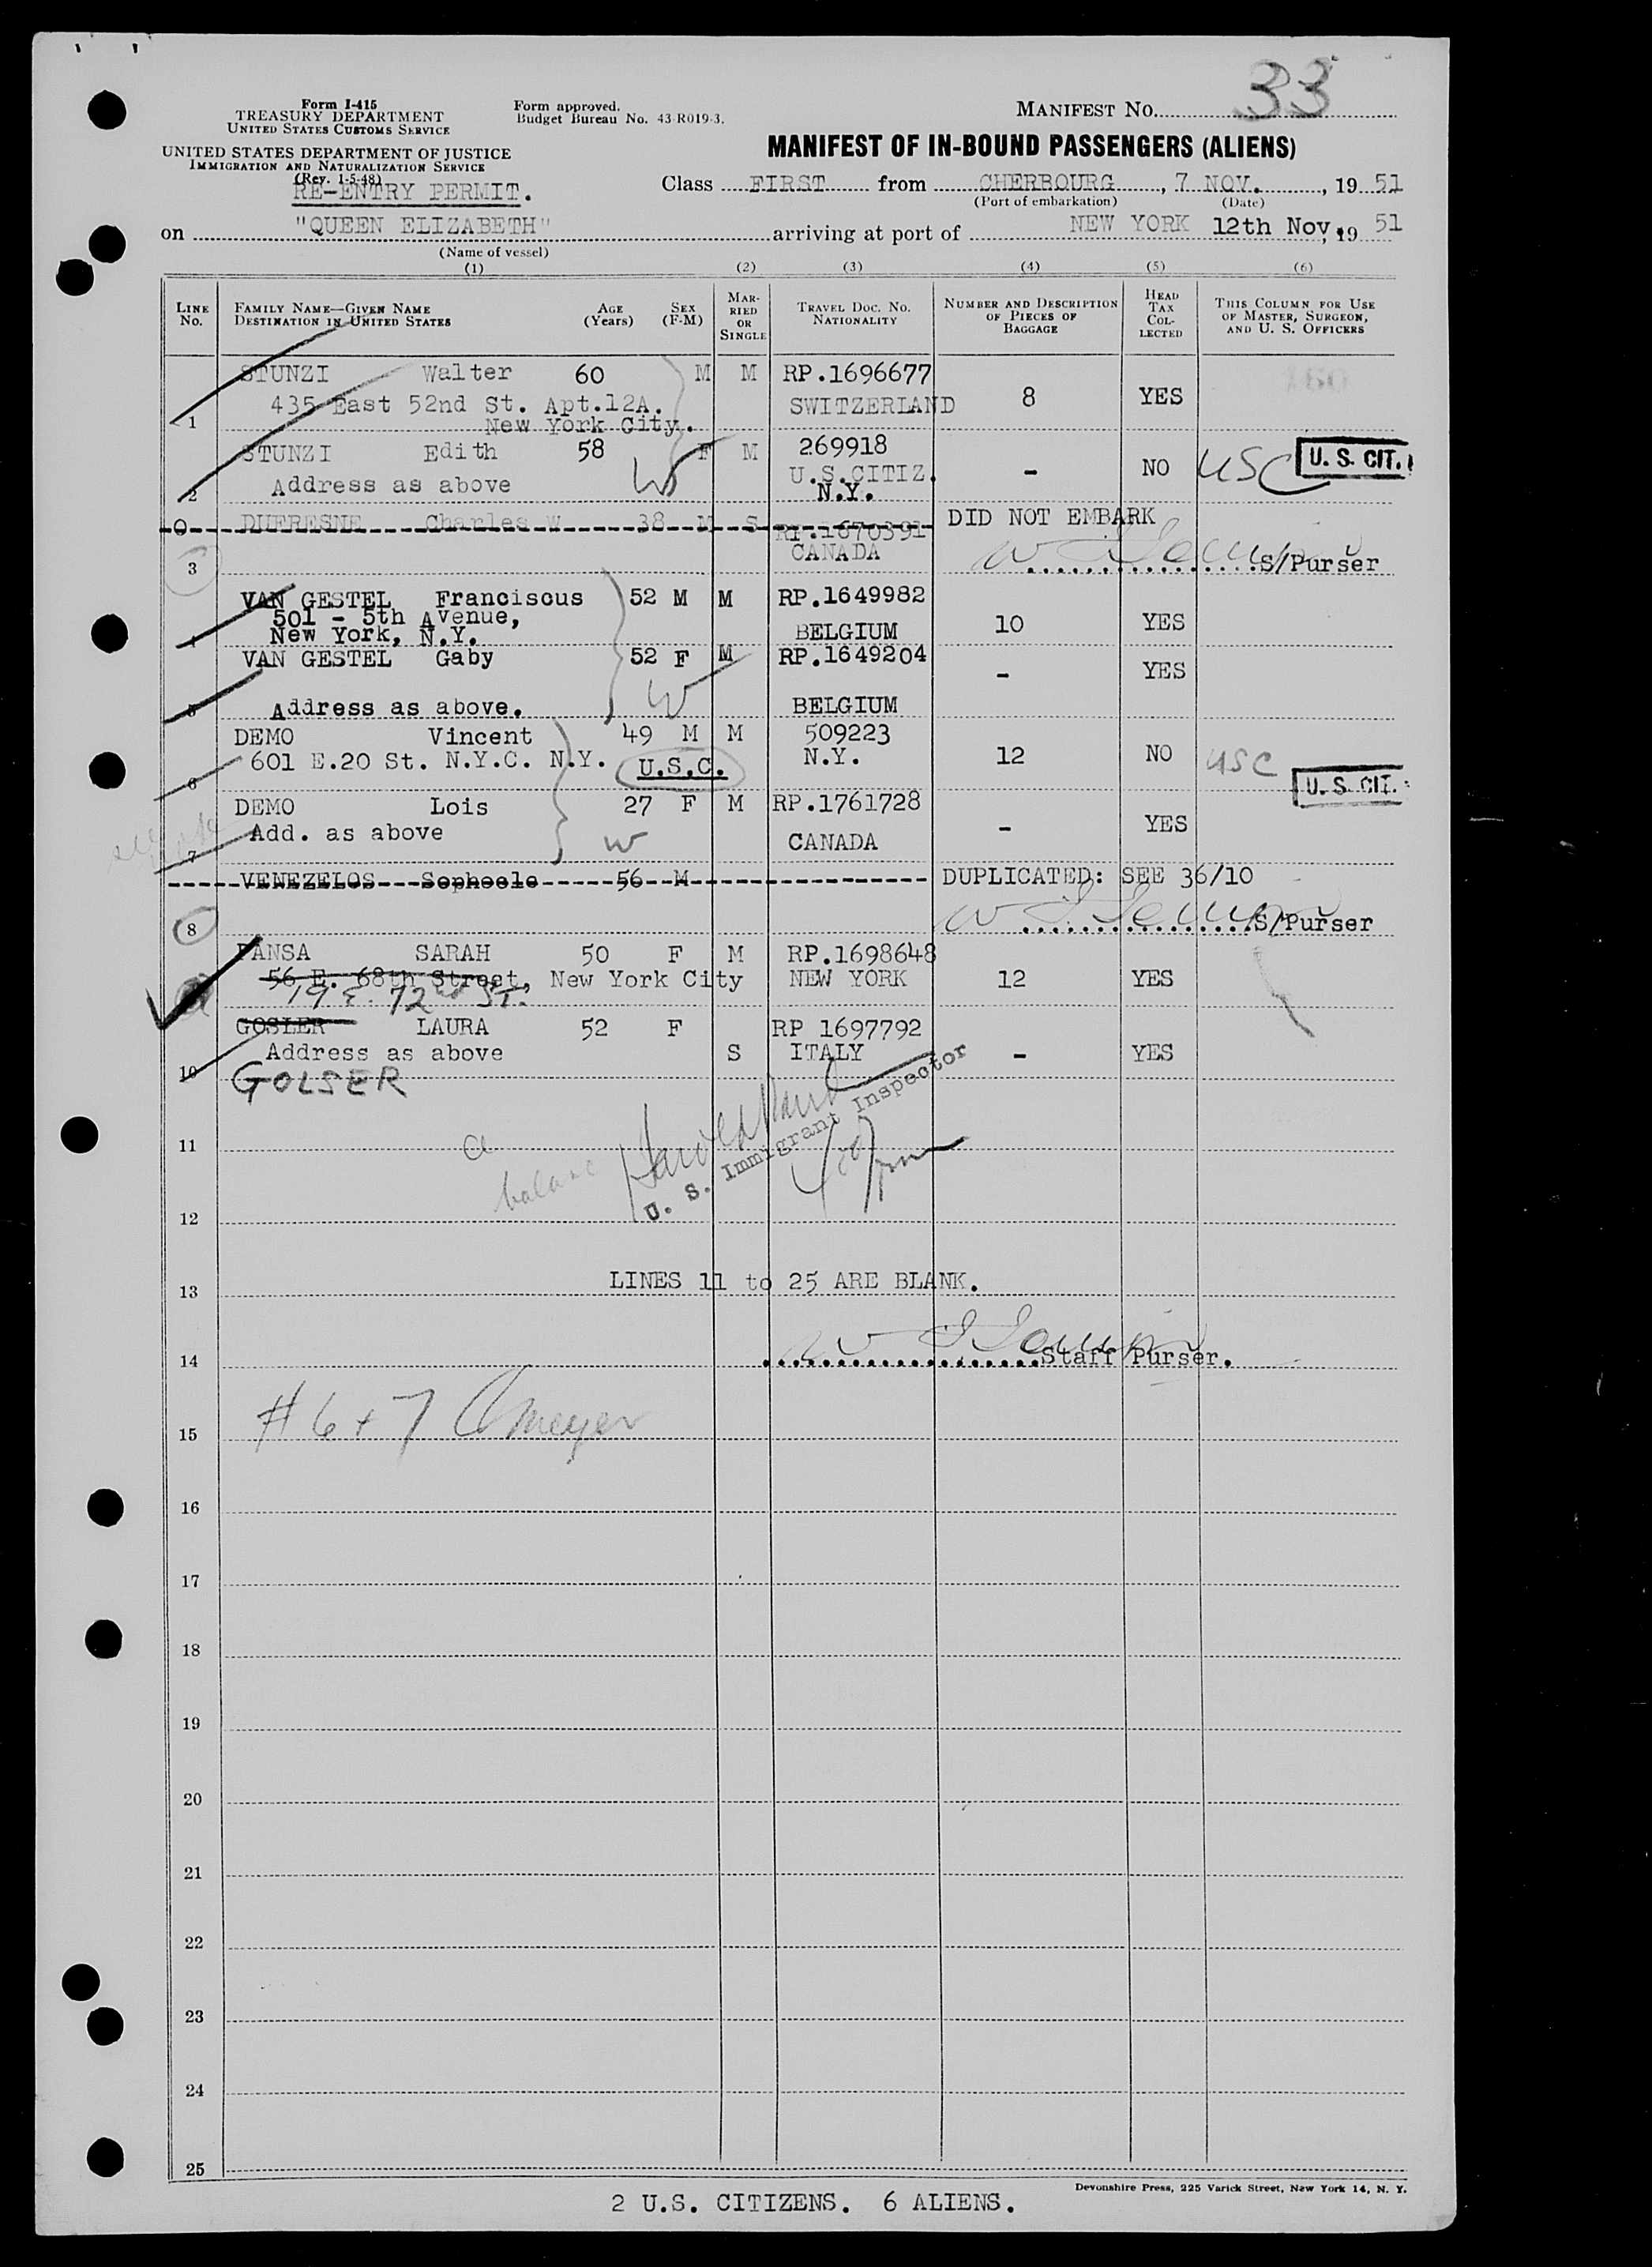 33
Form I-415
TREASURY DEPARTMENT
UNITED STATES CUSTOMS SERVICE
Form approved.
Budget Bureau No. 43-R019-3.
MANIFEST NO.
UNITED STATES DEPARTMENT OF JUSTICE
IMMIGRATION AND NATURALIZATION SERVICE
(Rev. 1-5-48)
MANIFEST OF IN-BOUND PASSENGERS (ALIENS)
RE-ENTRY PERMIT.
Class FIRST from CHERBOURG, 7 NOV., 19 51
(Port of embarkation) (Date)
on "QUEEN ELIZABETH" arriving at port of NEW YORK 12th Nov, 19 51
(Name of vessel)
(1) (2) (3) (4) (5) (6)
LINE NO. FAMILY NAME—GIVEN NAME DESTINATION IN UNITED STATES AGE (Years) SEX (F-M) MARRIED OR SINGLE TRAVEL DOC. NO. NATIONALITY NUMBER AND DESCRIPTION OF PIECES OF BAGGAGE HEAD TAX COLLECTED THIS COLUMN FOR USE OF MASTER, SURGEON, AND U. S. OFFICERS
STUNZI Walter 60 M M RP.1696677
435 East 52nd St. Apt.12A. SWITZERLAND 8 YES
1 New York City.
STUNZI Edith 58 F M 269918
W U.S.CITIZ. - NO USC U. S. CIT.
2 Address as above N.Y.
DUFRESNE Charles W 38 M S RP.1670391 DID NOT EMBARK
CANADA
3 S/Purser
VAN GESTEL Franciscus 52 M M RP.1649982
501 - 5th Avenue, 10 YES
4 New York, N.Y. BELGIUM
VAN GESTEL Gaby 52 F M RP.1649204
W - YES
5 Address as above. BELGIUM
DEMO Vincent 49 M M 509223
601 E.20 St. N.Y.C. N.Y. U.S.C. N.Y. 12 NO USC
6 U. S. CIT.
DEMO Lois 27 F M RP.1761728
Add. as above W CANADA - YES
7
VENEZELOS Sophocle 56 M DUPLICATED: SEE 36/10
8 S/Purser
PANSA SARAH 50 F M RP.1698648
56 E. 68th Street, New York City NEW YORK 12 YES
19 E. 72nd ST.
GOSLER LAURA 52 F RP 1697792
Address as above S ITALY - YES
10 GOLSER
11 U. S. Immigrant Inspector
12
LINES 11 to 25 ARE BLANK.
13
14 Staff Purser.
#6+7 Meyer
15
16
17
18
19
20
21
22
23
24
25
Devonshire Press, 225 Varick Street, New York 14, N. Y.
2 U.S. CITIZENS. 6 ALIENS.